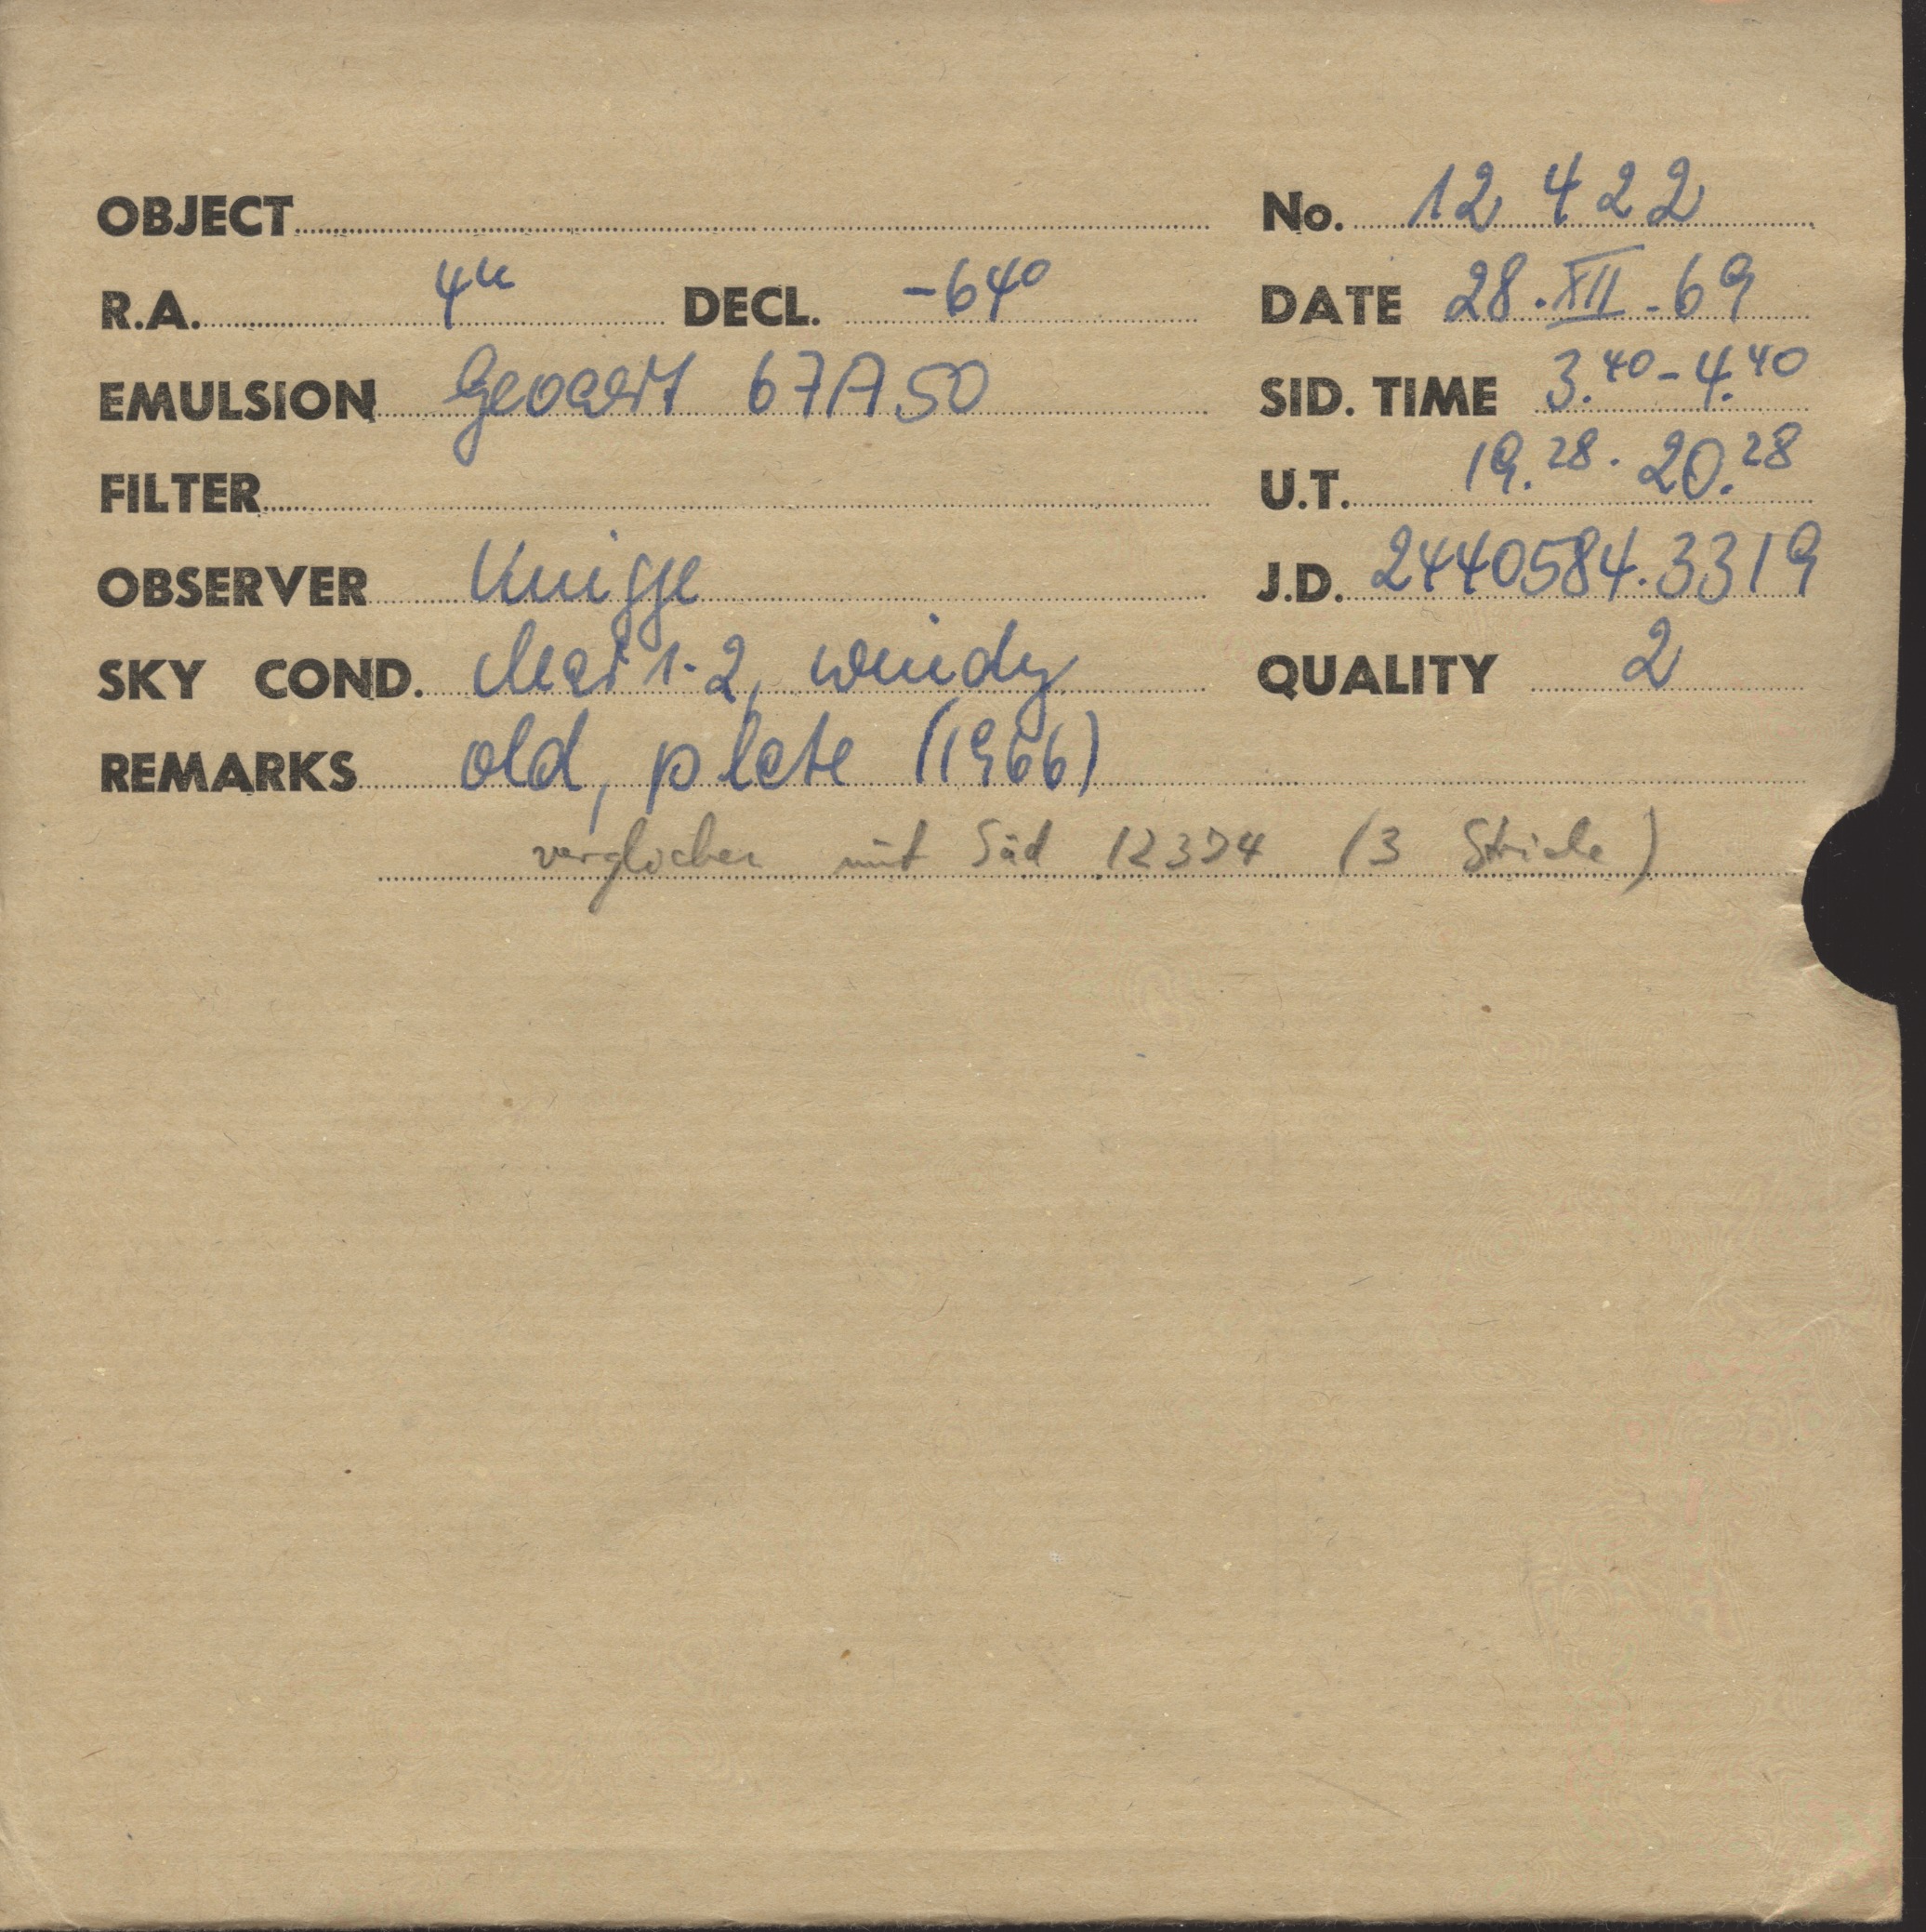 OBJECT No. 12 422
R.A. 4h DECL. -64° DATE 28.XII.69
EMULSION Gevaert 67A50 SID. TIME 3.40-4.40
FILTER U.T. 19.28 - 20.28
OBSERVER Knigge J.D. 2440584.3319
SKY COND. 1-2, windy QUALITY 2
REMARKS old, plate (1966)
verglichen mit Süd 12374 (3 Striche)